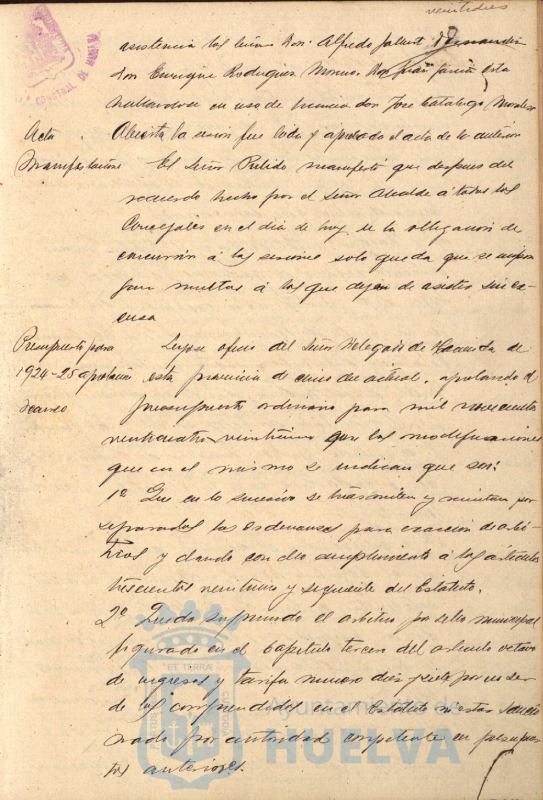 veintidós
asistencia los Señores Don Alfredo
Don Enrique Rodriguez Moreno Don Juan Garcia
hallandose en uso de licencia don Jose Morales
Acta
Abierta la sesión fue leida y aprobada el acta de la anterior
Manifestaciones
El Señor Pulido manifestó que despues del
recuerdo hecho por el Señor Alcalde á todos los
Concejales en el dia de hoy de la obligación de
concurrir á las sesiones solo queda que se impon
gan multas á los que dejen de asistir sin ex-
cusa
Presupuesto para
1924-25 aprobación
Leyose oficio del Señor Delegado de Hacienda de
esta provincia de cinco del actual, aprobando el
presupuesto ordinario para mil novecientos
veinticuatro veinticinco con las modificaciones
que en el mismo se indican que son:
1º Que en lo sucesivo se tramiten y remitan por
separadas las ordenanzas para exacción de arbi-
trios y dando con ello cumplimiento á los artículos
trescientos veintiuno y siguiente del Estatuto.
2º Queda suprimido el arbitrio por sello municipal
figurado en el capitulo tercero del articulo octavo
de ingresos y tarifa numero diez y siete por no ser
de los comprendidos en el Estatuto ni estar sancio
nado por autoridad competente en presupues
tos anteriores.
Ayuntamiento de
HUELVA